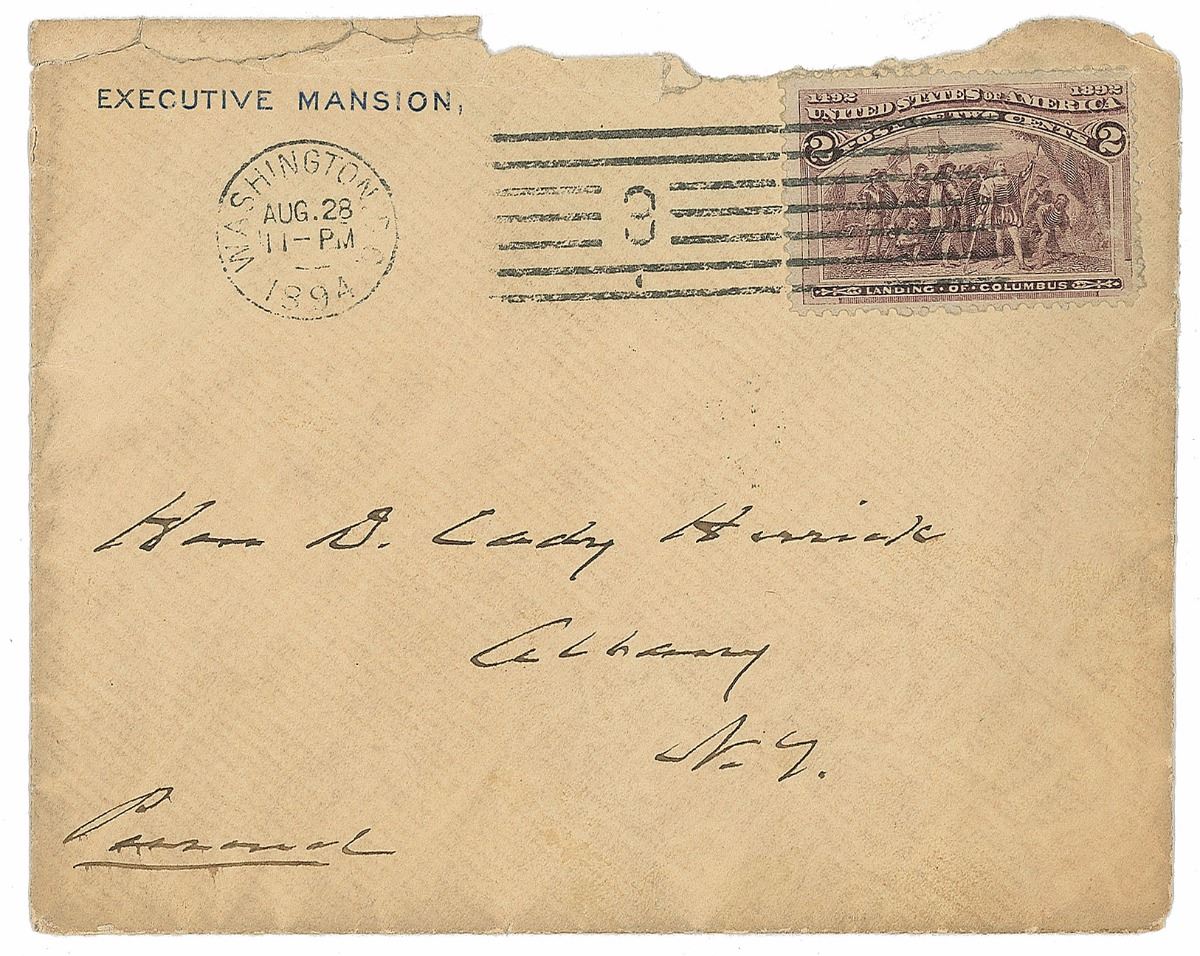 EXECUTIVE MANSION,
WASHINGTON, D.C.
AUG. 28
11-PM
1894
3
1492 1892
UNITED STATES OF AMERICA
2 POSTAGE TWO CENTS 2
LANDING · OF · COLUMBUS
Hon D. Cady Herrick
Albany
N.Y.
Personal